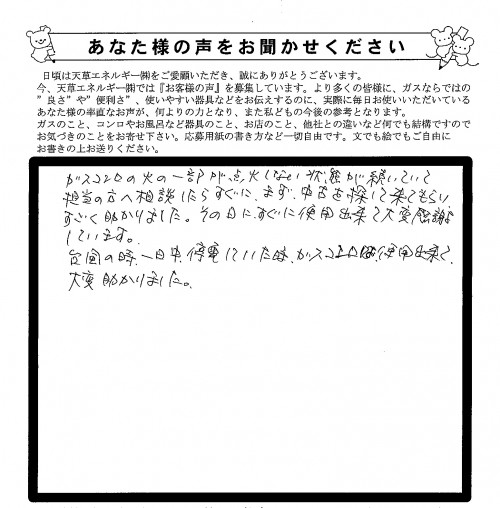 あなた様の声をお聞かせください
日頃は天草エネルギー㈱をご愛顧いただき、誠にありがとうございます。
今、天草エネルギー㈱では『お客様の声』を募集しています。より多くの皆様に、ガスならではの
”良さ”や”便利さ”、使いやすい器具などをお伝えするのに、実際に毎日お使いいただいている
あなた様の率直なお声が、何よりの力となり、また私どもの今後の参考となります。
ガスのこと、コンロやお風呂など器具のこと、お店のこと、他社との違いなど何でも結構ですので
お気づきのことをお寄せ下さい。応募用紙の書き方など一切自由です。文でも絵でもご自由に
お書きの上お送りください。
ガスコンロの火の一部が点火しない状態が続いていて
担当の方へ相談したらすぐに、まず、中古を探して来てもらい
すごく助かりました。その日にすぐに使用出来て大変感謝
しています。
台風の時、一日中停電していた時、ガスコンロは使用出来て、
大変助かりました。